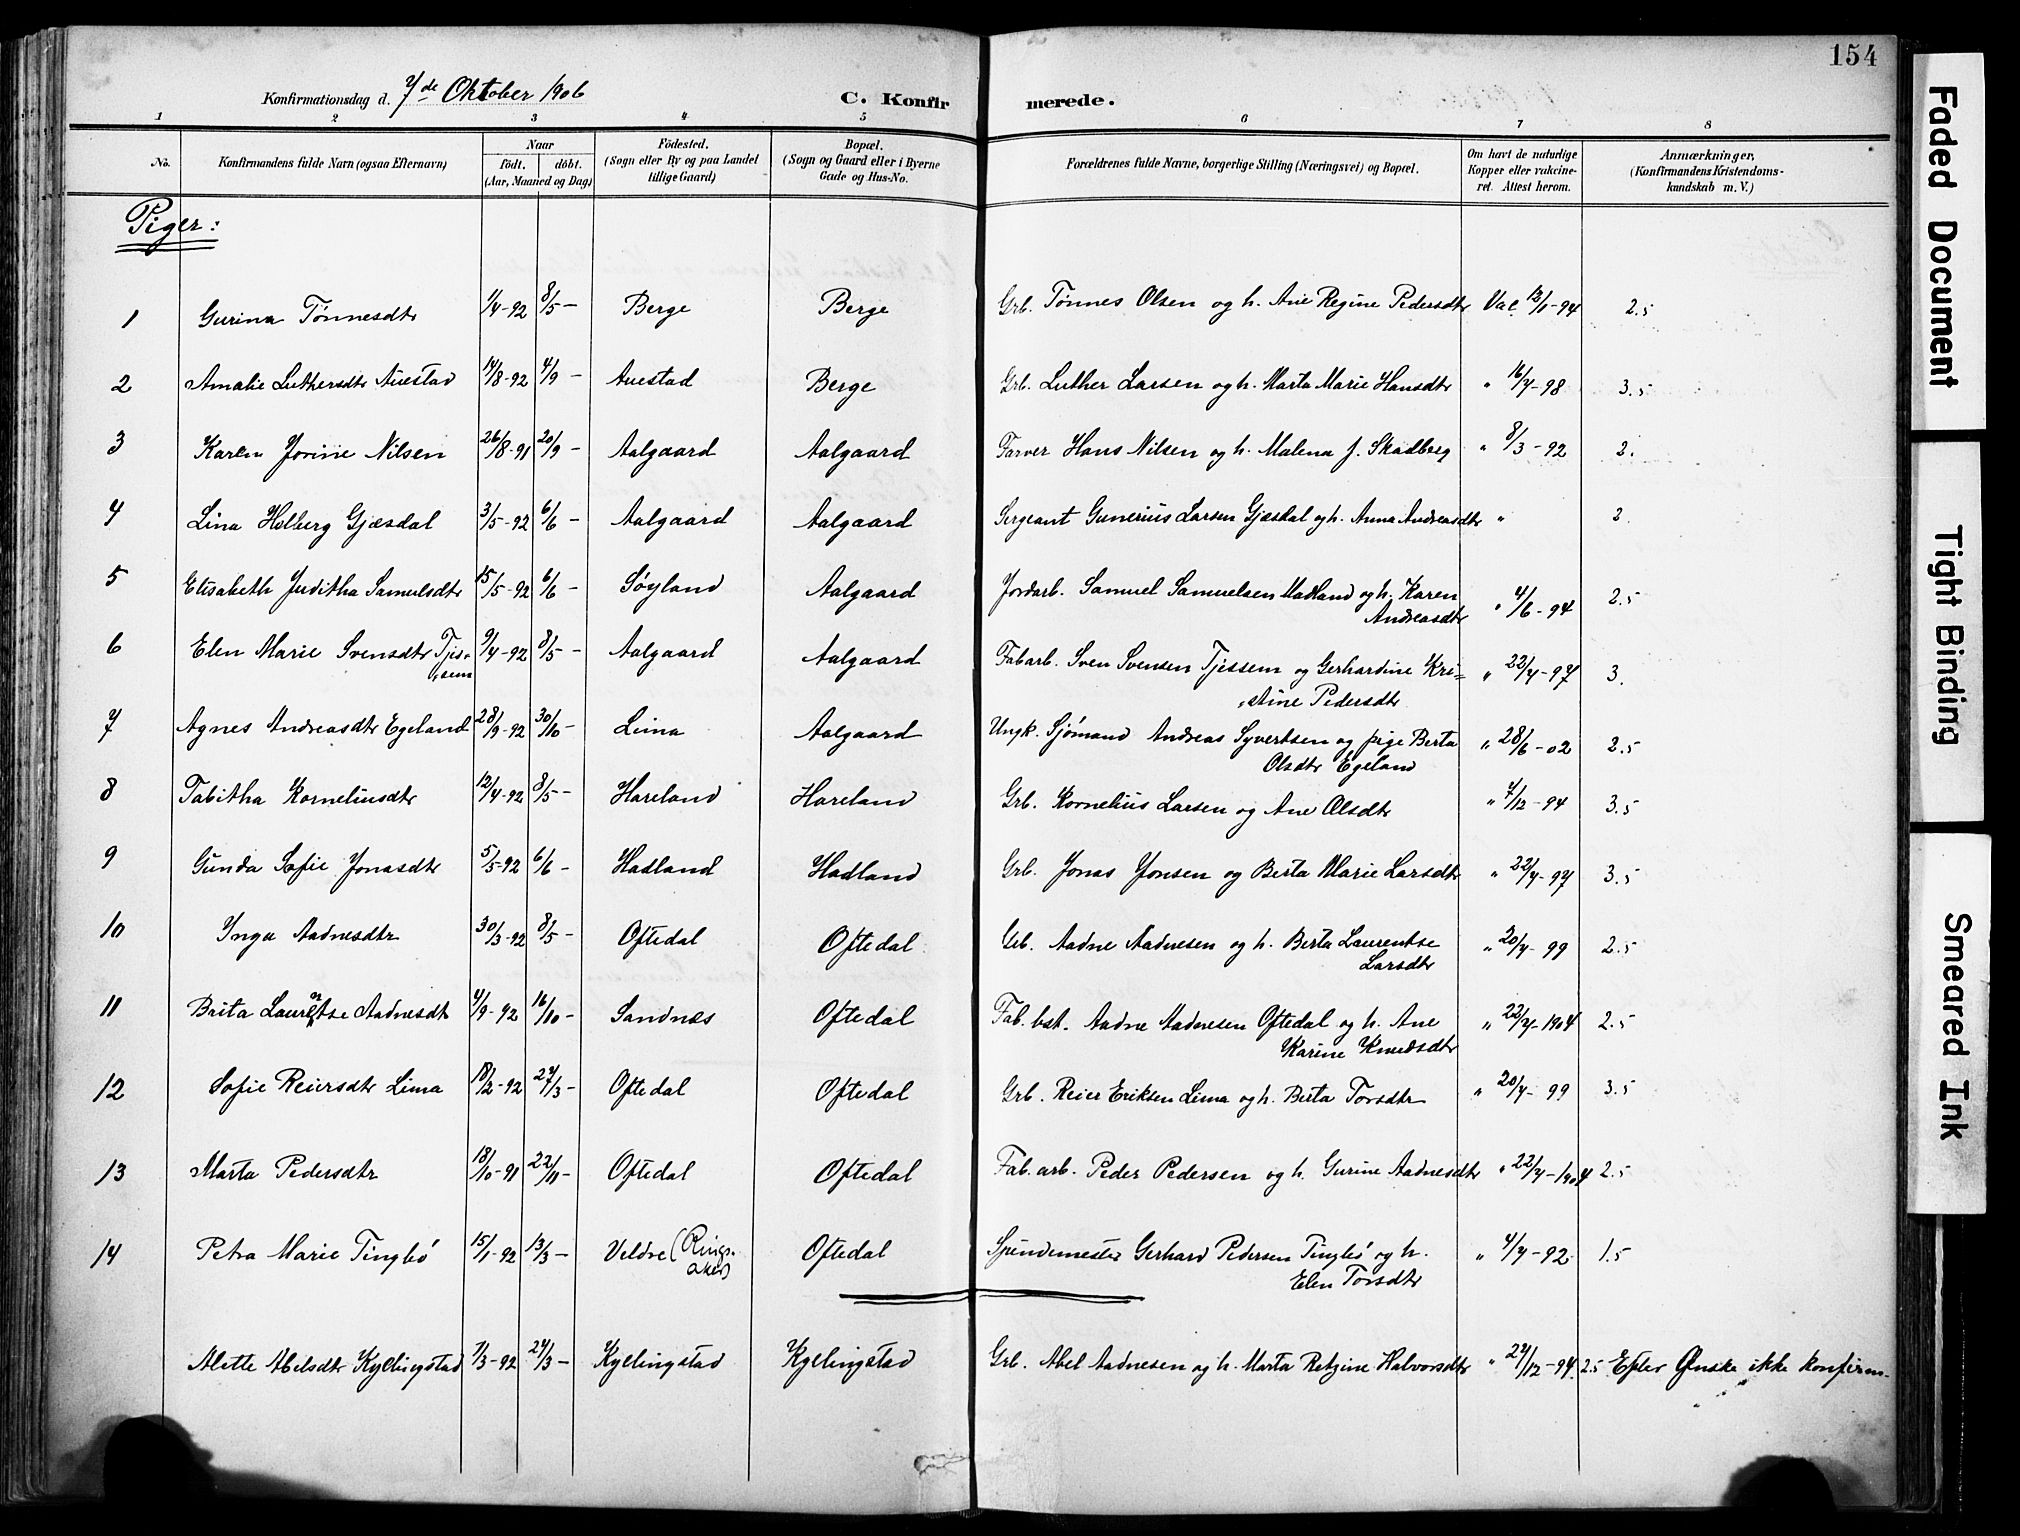 154
Konfirmationsdag d. 7de Oktober 1906 C. Konfir merede.
1 2 3 4 5 6 7 8
No. Konfirmandens fulde Navn (ogsaa Efternavn) Naar født. døbt. (Aar, Maaned og Dag) Fødested. (Sogn eller By og paa Landet tillige Gaard) Bopæl. (Sogn og Gaard eller i Byerne Gade og Hus-No. Forældrenes fulde Navne, borgerlige Stilling (Næringsvei) og Bopæl. Om havt de naturlige Kopper eller vakcineret. Attest herom. Anmærkninger, (Konfirmandens Kristendomskundskab m. V.)
Piger:
1 Gurina Tønnesdtr 1/4-92 8/5 - Berge Berge Grb. Tønnes Olsen og h. Ane Regine Pedersdtr Vac 12/1-94 2.5
2 Amalie Luthersdtr Auestad 14/8-92 4/9 - Auestad Berge Grb. Luther Larsen og h. Marta Marie Hansdtr " 16/7-98 3.5
3 Karen Jorine Nilsen 26/8-91 20/9 - Aalgaard Aalgaard Farver Hans Nilsen og h. Malena J. Skadberg " 8/3-92 2.
4 Lina Holberg Gjæsdal 3/5-92 6/6 - Aalgaard Aalgaard Sergeant Gunerius Larsen Gjæsdal og h. Anna Andreasdtr " 2.
5 Elisabeth Juditha Samuelsdtr 15/5-92 6/6 - Søyland Aalgaard Jordarb. Samuel Samuelsen Madland og h. Karen " 4/6-94 2.5
Andreasdtr
6 Elen Marie Svensdtr Tjes- 9/4-92 8/5 - Aalgaard Aalgaard Fabarb. Sven Svensen Tjessem og Gerhardine Kri= " 22/7-97 3.
sem stine Pedersdtr
7 Agnes Andreasdtr Egeland 28/9-92 30/10 - Lima Aalgaard Ungk. Sjømand Andreas Syvertsen og pige Berta " 28/6-02 2.5
Olsdtr Egeland
8 Tabitha Korneliusdtr 12/4-92 8/5 - Hareland Hareland Grb. Kornelius Larsen og Ane Olsdtr " 7/12-94 3.5
9 Gunda Sofie Jonasdtr 5/5-92 6/6 - Hadland Hadland Grb. Jonas Jonsen og Berta Marie Larsdtr " 22/7-97 3.5
10 Inga Aadnesdtr 30/3-92 8/5 - Oftedal Oftedal Grb. Aadne Aadnesen og h. Berta Laurentse " 20/7-99 2.5
Larsdtr
11 Brita Laurentse Aadnesdt 4/9-92 16/10 - Sandnæs Oftedal Fab. bst. Aadne Aadnesen Oftedal og h. Ane " 22/7-1904 2.5
Karine Knudsdtr
12 Sofie Reiersdtr Lima 18/2-92 27/3 - Oftedal Oftedal Grb. Reier Eriksen Lima og h. Berta Torsdtr " 20/7-99 3.5
13 Marta Pedersdtr 18/10-91 22/11 - Oftedal Oftedal Fab. arb. Peder Pedersen og h. Gurine Aadnesdtr " 22/7-1904 2.5
14 Petra Marie Tingbø 15/1-92 13/3 - Veldre (Rings- Oftedal Spindemester Gerhard Pedersen Tingbø og h. " 4/7-92 1.5
aker) Elen Torsdtr
Alette Abelsdtr Kyllingstad 7/3-92 27/3 - Kyllingstad Kyllingstad Grb. Abel Aadnesen og h. Marta Retzine Halvorsdtr " 29/12-94 2.5 Efter Ønske ikke konfirm.
Faded Document
Tight Binding
Smeared Ink